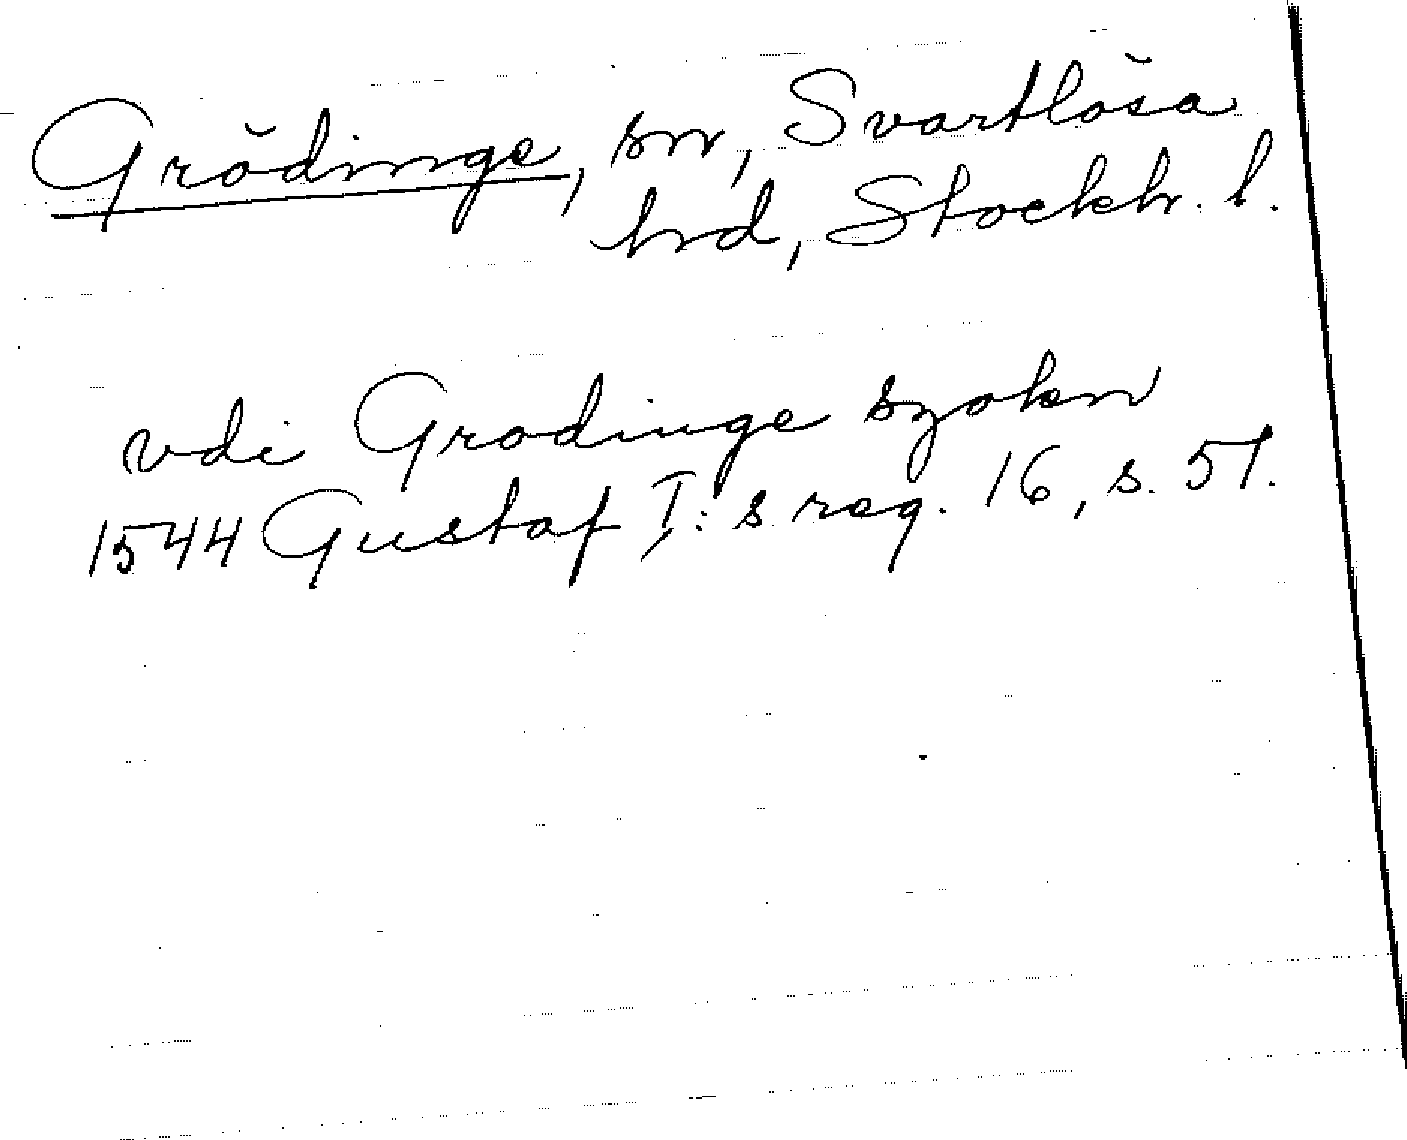 Grödinge, sn, Svartlösa
hrd, Stockh. l.
vdi Grodinge szokn
1544 Gustaf I:s reg. 16, s. 51.